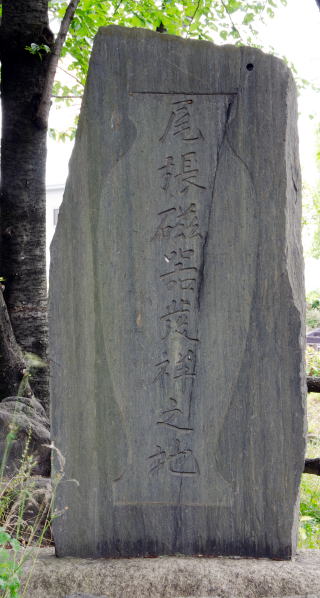 尾張磁器発祥之地